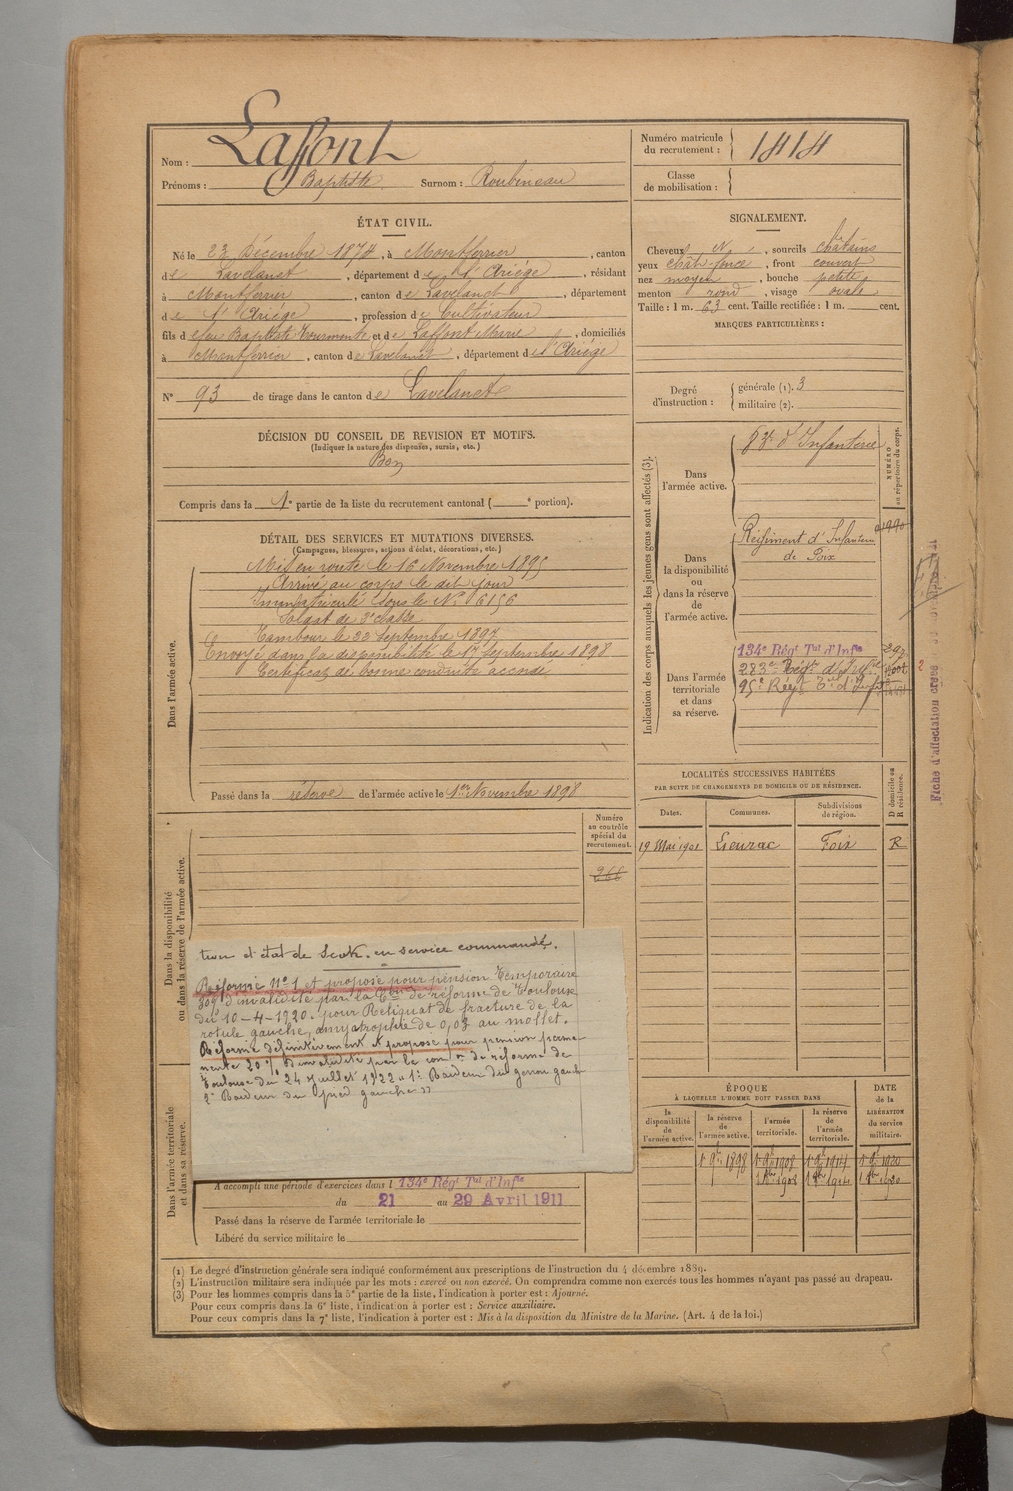 Nom : Laffont
Prénoms : Baptiste Surnom : Roubineau
Numéro matricule du recrutement : 1414
Classe de mobilisation :
ÉTAT CIVIL.
Né le 23 Décembre 1874, à Montferrier, canton
de Lavelanet, département de l'Ariège, résidant
à Montferrier, canton de Lavelanet, département
de l'Ariège, profession de Cultivateur
fils de feu Baptiste et de Laffont Marie, domiciliés
à Montferrier, canton de Lavelanet, département de l'Ariège
N° 93 de tirage dans le canton de Lavelanet
DÉCISION DU CONSEIL DE REVISION ET MOTIFS.
(Indiquer la nature des dispenses, sursis, etc.)
Bon
Compris dans la 1e partie de la liste du recrutement cantonal ( e portion).
DÉTAIL DES SERVICES ET MUTATIONS DIVERSES.
(Campagnes, blessures, actions d'éclat, décorations, etc.)
Dans l'armée active.
Mis en route le 16 Novembre 1895
Arrivé au corps le dit jour
Immatriculé sous le N° 6156
Soldat de 2e classe
Tambour le 22 Septembre 1897
Envoyé dans la disponibilité le 17 Septembre 1898
Certificat de bonne conduite accordé
Passé dans la réserve de l'armée active le 1er Novembre 1898
Dans la disponibilité
ou dans la réserve de l'armée active.
Numéro
au contrôle
spécial du
recrutement.
266
tion d'état de en service commandé.
Réformé N° 1 et proposé pour pension temporaire
30% d'invalidité par la Con de réforme de Toulouse
du 10-4-1920. pour Reliquat de fracture de la
rotule gauche, amyotrophie de 0,03 au mollet.
Réformé définitivement et proposé pour pension perma-
nente 20% d'invalidité par la con on de réforme de
Toulouse du 24 Juillet 1922 " 1° Raideur du genou gauche
2° Raideur du pied gauche "
Dans l'armée territoriale
et dans sa réserve.
A accompli une période d'exercices dans l 134e Régt Tal d'Infie
du 21 au 29 Avril 1911
Passé dans la réserve de l'armée territoriale le
Libéré du service militaire le
SIGNALEMENT.
Cheveux N, sourcils châtains
yeux chât foncé, front couvert
nez moyen, bouche petite
menton rond, visage ovale
Taille : 1 m. 63 cent. Taille rectifiée : 1 m. cent.
MARQUES PARTICULIÈRES :
Degré d'instruction : générale (1). 3
militaire (2).
Indication des corps auxquels les jeunes gens sont affectés (3).
NUMÉRO
au répertoire du corps.
Dans
l'armée active.
d'Infanterie
Dans
la disponibilité
ou
dans la réserve
de
l'armée active.
Régiment d'Infanterie
de Foix
Dans l'armée
territoriale
et dans
sa réserve.
134e Régt Tal d'Infie
283e Régt d'Infie
95e Régt Tal d'Infie
Fiche d'affectation créée
LOCALITÉS SUCCESSIVES HABITÉES
PAR SUITE DE CHANGEMENTS DE DOMICILE OU DE RÉSIDENCE.
D domicile ou
R résidence.
Dates. Communes. Subdivisions
de région.
19 Mai 1901 Lieurac Foix R
ÉPOQUE
À LAQUELLE L'HOMME DOIT PASSER DANS
DATE
de la
LIBÉRATION
du service
militaire.
la disponibilité de l'armée active. la réserve de l'armée active. l'armée territoriale. la réserve de l'armée territoriale.
1 9bre 1898 1 9bre 1908 1 9bre 1914 1 9bre 1920
(1) Le degré d'instruction générale sera indiqué conformément aux prescriptions de l'instruction du 4 décembre 1889.
(2) L'instruction militaire sera indiquée par les mots : exercé ou non exercé. On comprendra comme non exercés tous les hommes n'ayant pas passé au drapeau.
(3) Pour les hommes compris dans la 5e partie de la liste, l'indication à porter est : Ajourné.
Pour ceux compris dans la 6e liste, l'indication à porter est : Service auxiliaire.
Pour ceux compris dans la 7e liste, l'indication à porter est : Mis à la disposition du Ministre de la Marine. (Art. 4 de la loi.)